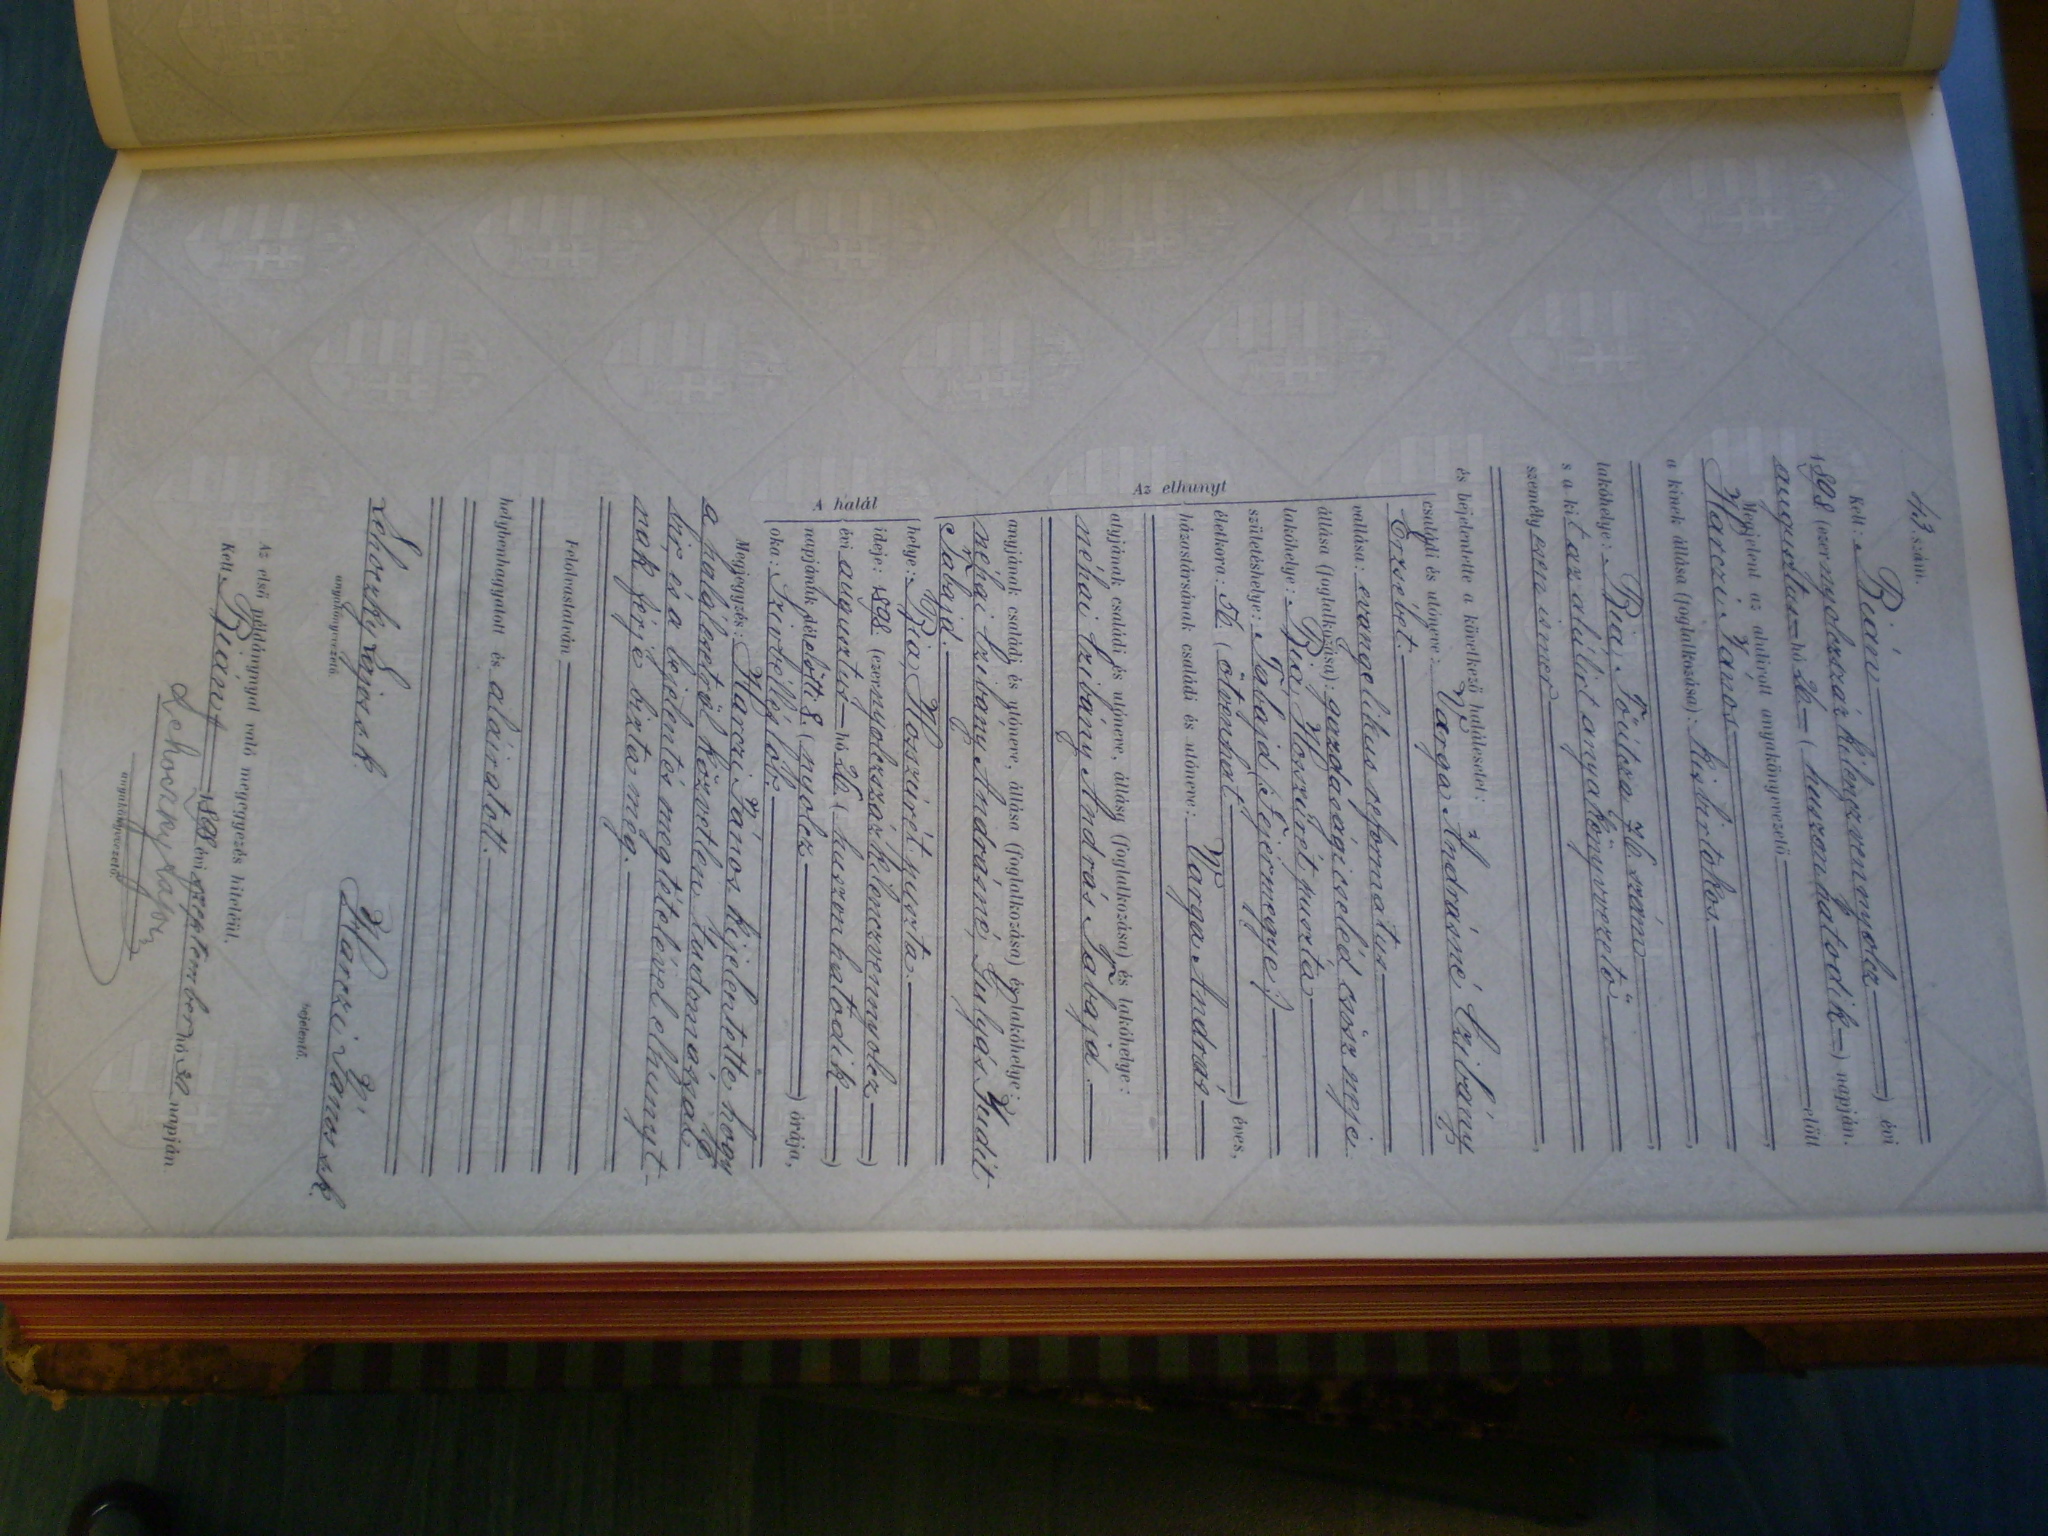 43 szám.
Kelt: Bián évi
1898 (ezernyolczszáz kilenczvennyolcz
augusztus hó 26 (huszonhatodik) napján.
Megjelent az alulirott anyakönyvvezető előtt
Harczi János
a kinek állása (foglalkozása): kisbirtokos
lakóhelye: Biai Főútcza 76. szám,
s a kit az alólirt anyakönyvvezető
személyesen ismer,
és bejelentette a következő halálesetet:
Az elhunyt
családi és utóneve: Varga Andrásné Czibány
Erzsébet.
vallása: evangelikus református
állása (foglalkozása): gazdasági cseléd csősz neje.
lakóhelye: Bia, Hosszúrét puszta
születéshelye: Tabajd (Fejérmegye)
életkora: 56. (ötvenhat) éves,
házastársának családi és utóneve: Varga András
atyjának családi és utóneve, állása (foglalkozása) és lakóhelye:
néhai Czibány András Tabajd.
anyjának családi és utóneve, állása (foglalkozása) és lakóhelye:
néhai Czibány Andrásné, Gulyás Judit
Tabajd.
A halál
helye: Bia, Hosszúrét puszta
ideje: 1898. (ezernyolczszáz kilenczvennyolcz)
évi augusztus hó 26. (huszonhatodik)
napjának délelőtti 8. (nyolcz) órája,
oka: Szivbéllob.
Megjegyzés: Harczi János kijelentette hogy
a halálesetről közvetlen tudomással
bir, és a bejelentés megtételével elhunyt-
nak férje bizta meg.
Felolvastatván
helybenhagyatott és aláiratott.
Lehoczky Lajos s.k.
anyakönyvvezető.
Harczi János s.k.
bejelentő.
Az első példánynyal való megegyezés hiteléül.
Kelt Bián, 1898 évi szeptember hó 30 napján
Lehoczky Lajos
anyakönyvvezető.